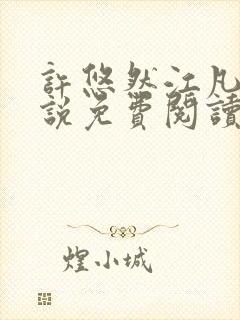 許悠然江凡
說免費閱讀
煌小城